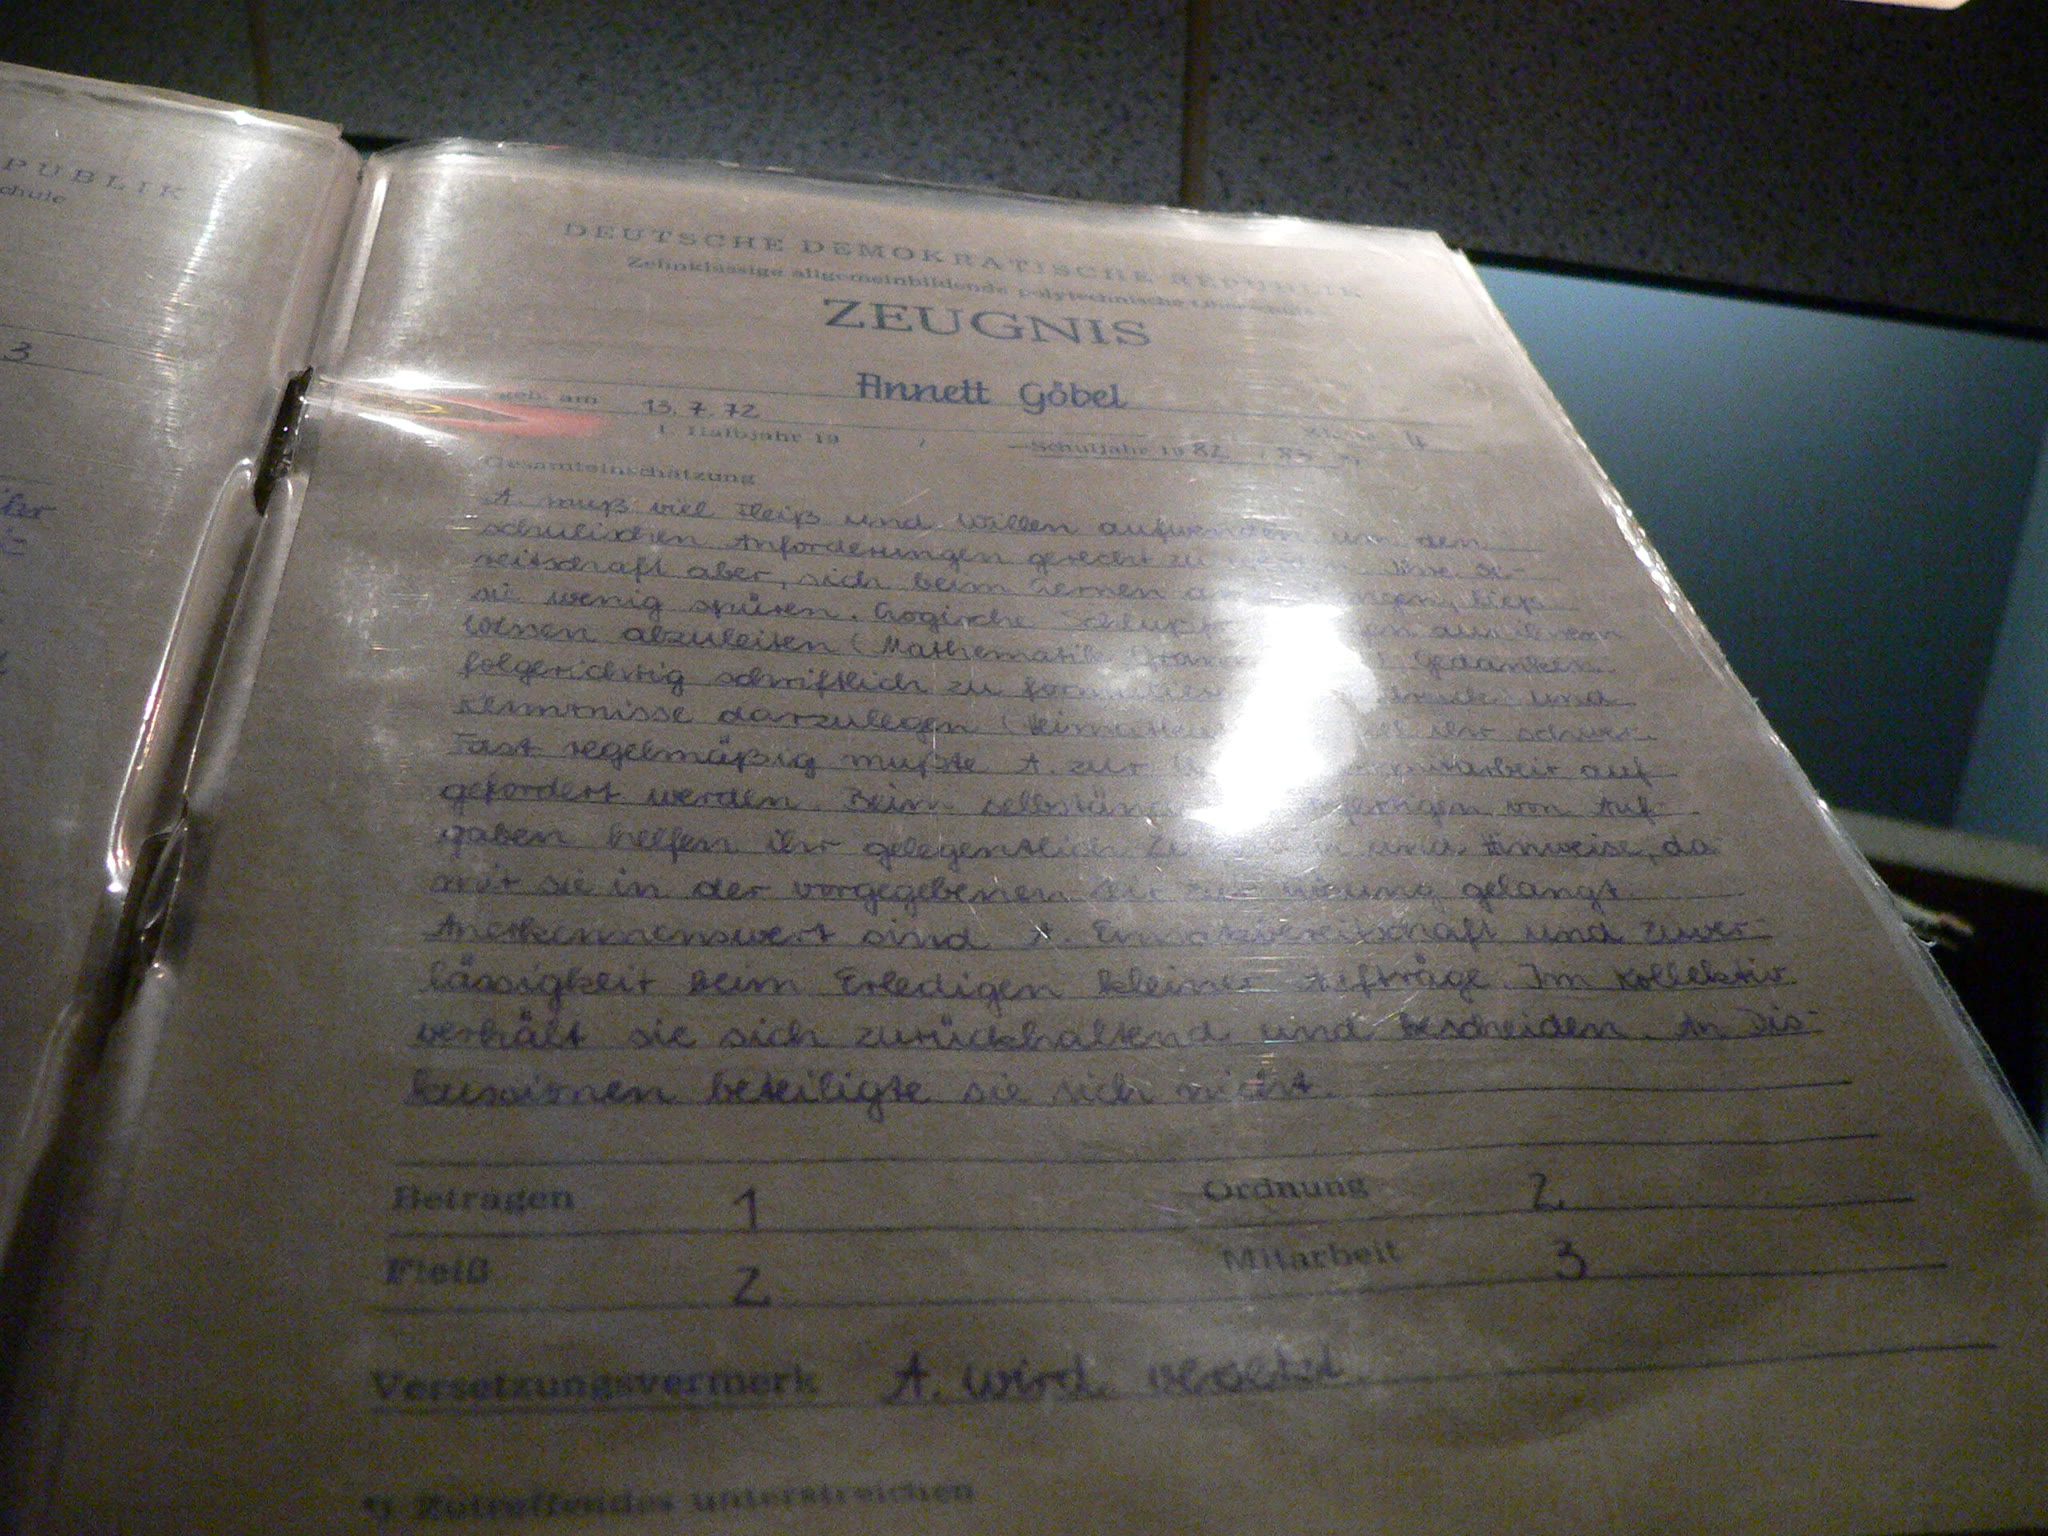 PUBLIK
chule
3
DEUTSCHE DEMOKRATISCHE REPUBLIK
Zehnklassige allgemeinbildende polytechnische Oberschule
ZEUGNIS
Annett Göbel
geb. am 13. 7. 72
1. Halbjahr 19 / Schuljahr 19 82 / 83 Klasse 4
Gesamteinschätzung
A. muß viel Fleiß und Willen aufwenden, um den
schulischen Anforderungen gerecht zu Ihre Be-
reitschaft aber, sich beim Lernen ließ
sie wenig spüren. Logische aus ihrem
Wissen abzuleiten (Mathematik, Gedanken
folgerichtig schriftlich zu und
Kenntnisse darzulegen ihr schwer.
Fast regelmäßig mußte A. zur auf-
gefordert werden. Beim von Auf-
gaben helfen ihr gelegentlich und Hinweise, da-
mit sie in der vorgegebenen Zeit zur Lösung gelangt.
Anerkennenswert sind A. Einsatzbereitschaft und Zuver-
lässigkeit beim Erledigen kleiner Aufträge. Im Kollektiv
verhält sie sich zurückhaltend und bescheiden. An Dis-
kussionen beteiligte sie sich nicht.
Betragen 1 Ordnung 2
Fleiß 2 Mitarbeit 3
Versetzungsvermerk A. wird versetzt
*) Zutreffendes unterstreichen